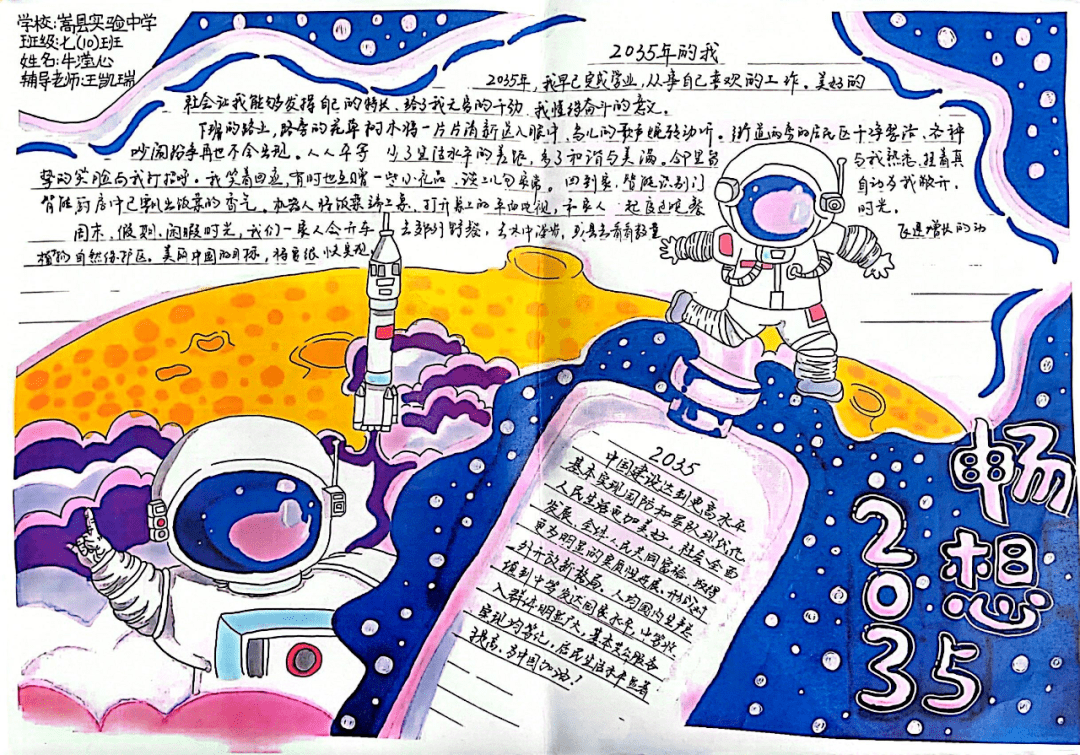 学校:嵩县实验中学
班级:七(10)班
姓名:牛滢心
辅导老师:王凯瑞
2035年的我
2035年,我早已完成学业,从事自己喜欢的工作。美好的
社会让我能够发挥自己的特长,给了我无穷的干劲,我懂得奋斗的意义。
下班的路上,路旁的花草树木将一片片清新送入眼中,鸟儿的歌声婉转动听。街道两旁的居民区干净整洁,各种
吵闹纷争再也不会出现。人人平等 少了生活水平的差距,多了和谐与美满。邻里 与我熟悉,挂着真
挚的笑脸向我打招呼。我笑着回应,有时也互赠一些小礼品,谈上几句家常。回到家,智能识别门 自动为我敞开,
智能厨房中已飘出饭菜的香气。机器人将饭菜端上桌,打开桌上的平面电视,和家人一起度过晚餐 时光。
周末、假期、闲暇时光,我们一家人会开车 去郊外野餐,去水中漫步,或是去看看数量 飞速增长的动
植物自然保护区。美丽中国的目标,将会很快实现
2035
中国建设达到更高水平
基本实现国防和军队现代化
人民生活更加美好,社会全面
发展,全体人民共同富裕,取得
更为明显的实质性进展,形成对
外开放新格局。人均国内生产总
值到中等发达国家水平,中等收
入群体明显扩大,基本公众服务
实现均等化,居民生活水平显著
提高,为中国加油!
畅想2035